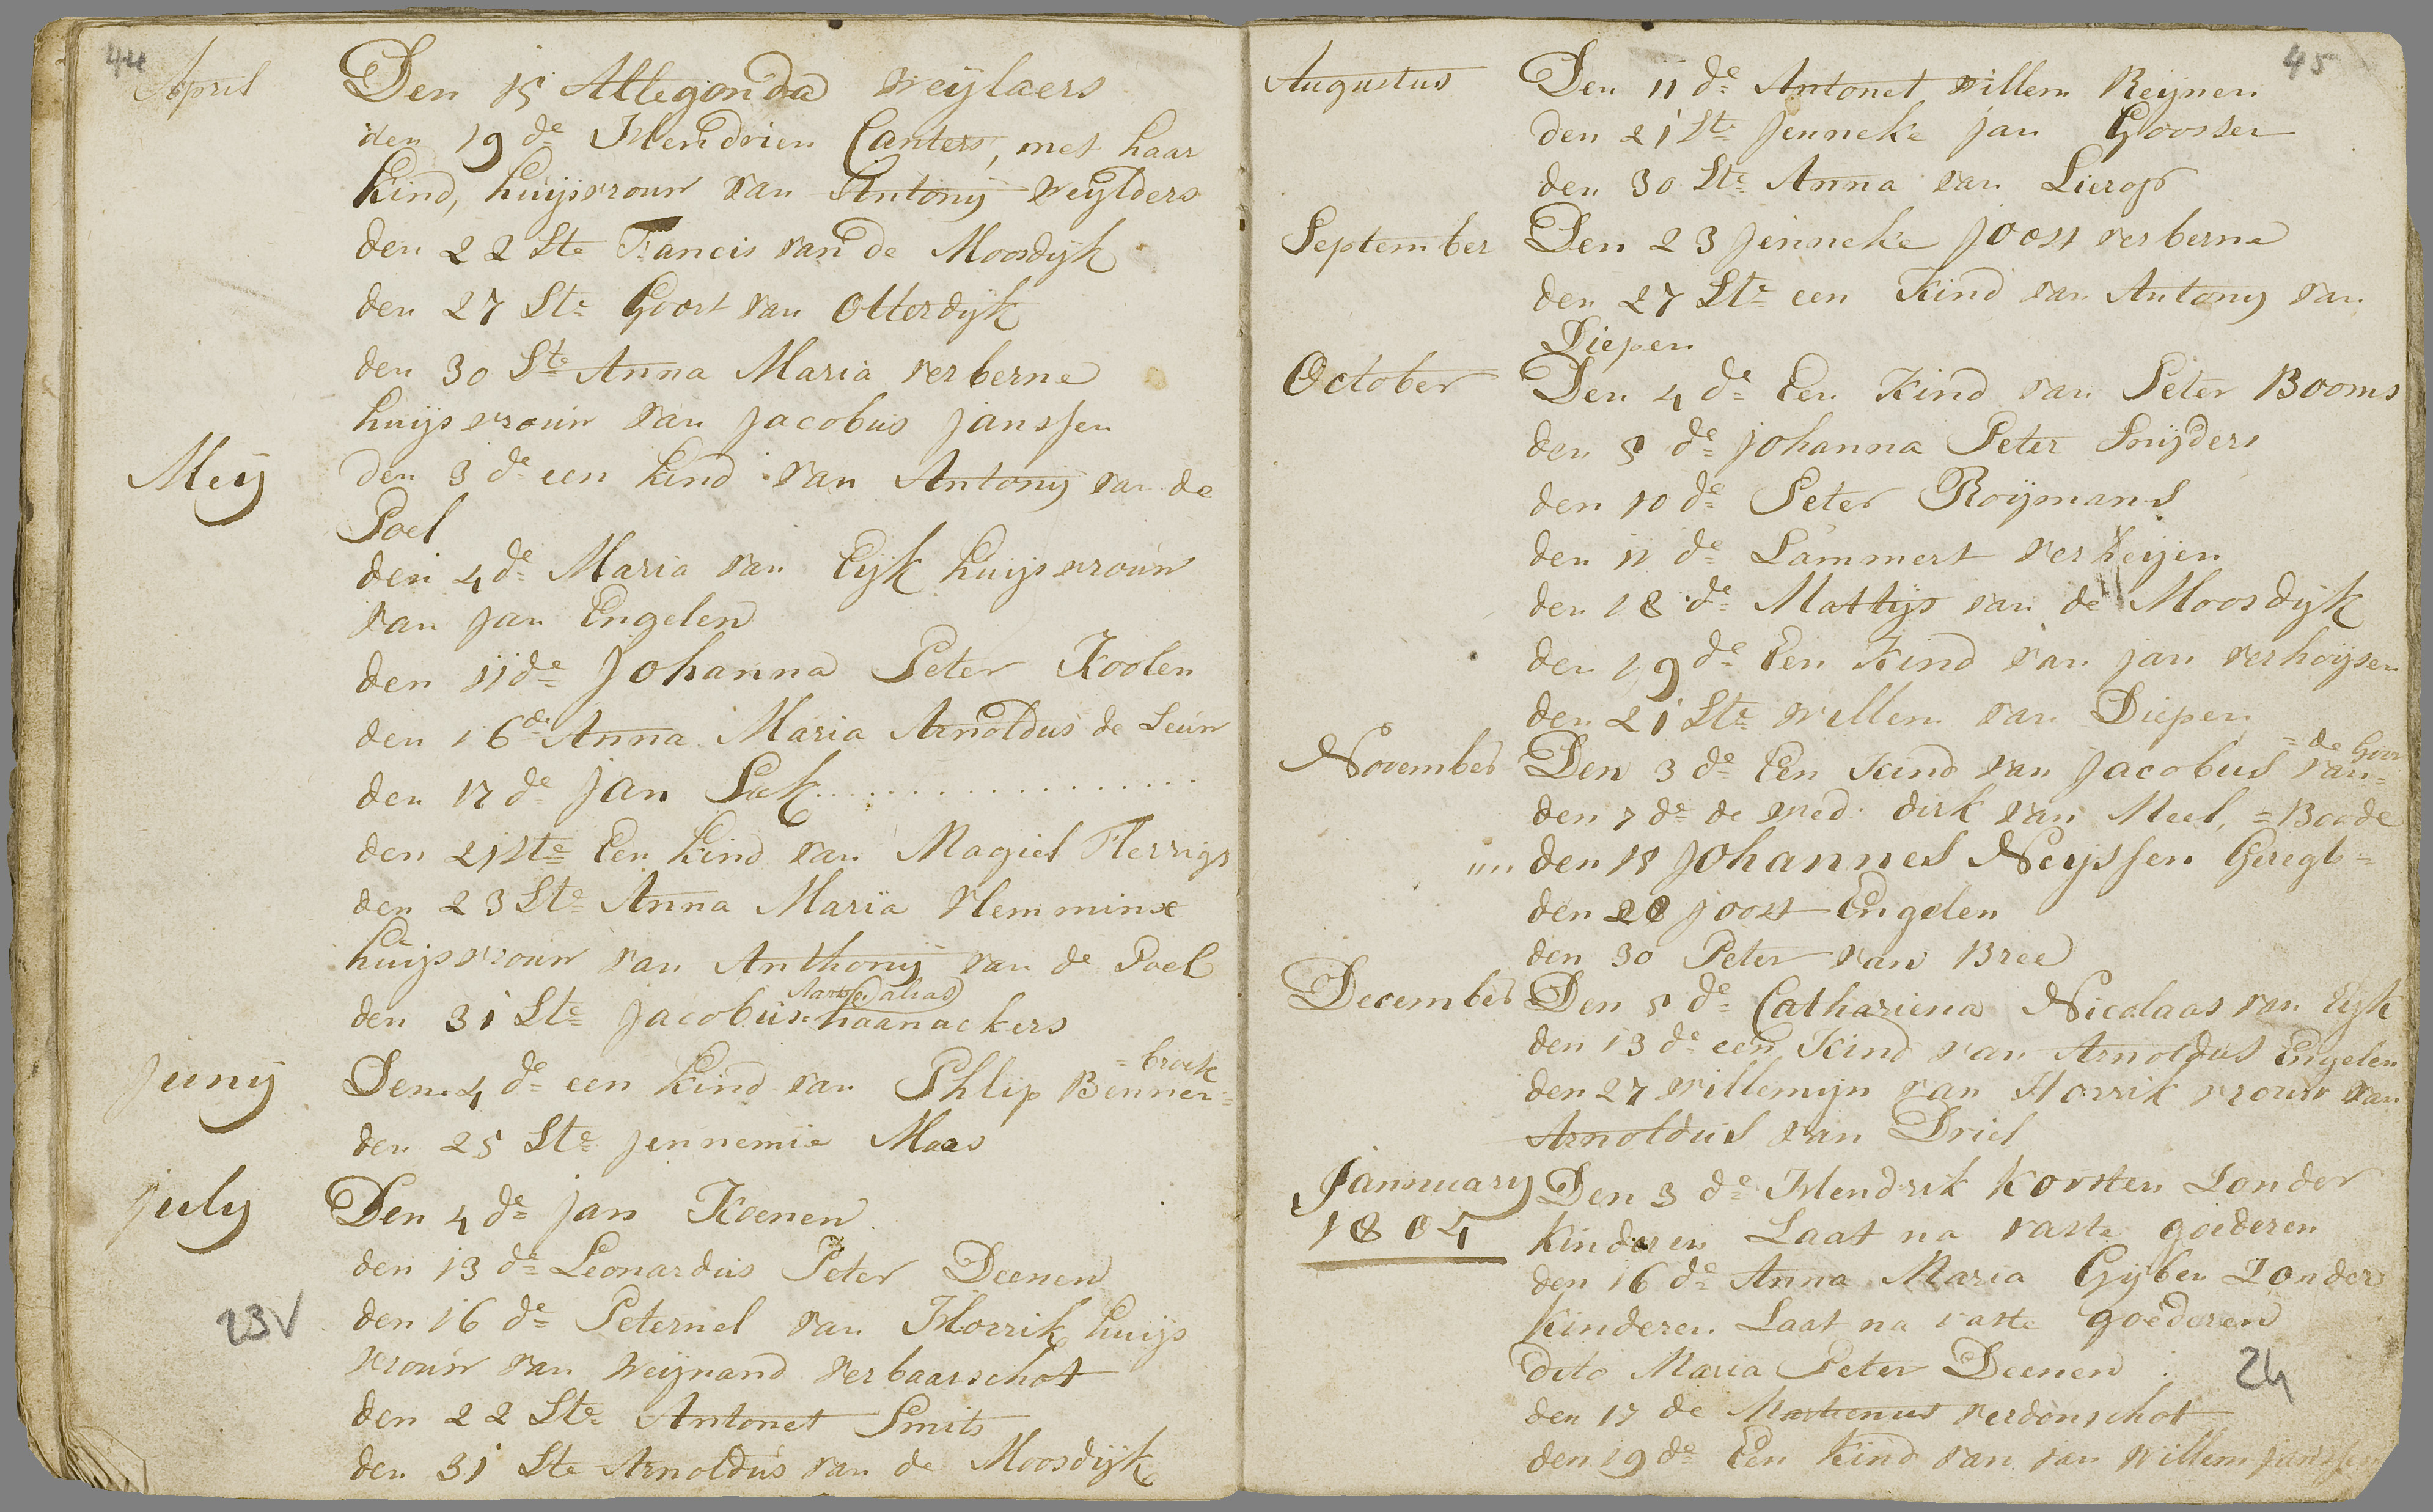 44
April Den 15 Allegonda weijlaers
den 19 de Hendrien Canters, met haar
kind, huijsvrouw van Antonij weijlders
den 22 Ste Francis van de Moosdijk
den 27 Ste Goort van Otterdijk
den 30 Ste Anna Maria verberne
huijsvrouw van Jacobus janssen
Meij den 3 de een kind van Antonij van de
Poel
den 4 de Maria van Eijk huijsvrouw
van jan Engelen
den 11 de Johanna Peter Koolen
den 16 de Anna Maria Arnoldus de Leuw
den 17 de jan Sak..................
den 21 ste Een kind van Magiel Flerrigs
den 23 Ste Anna Maria Vlemminx
huijsvrouw van Anthonij van de Poel
alias
den 31 Ste Jacobus haanackers
= broek
junij Den 4 de een kind van Phlip Bennen=
den 25 Ste jennemie Maas
july Den 4 de jan Koenen
den 13 de Leonardus Peter Deenen
den 16 de Peternel van Horrik huijs
23V
vrouw van weijnand verbaarschot
den 22 Ste Antonet Smits
den 31 Ste Arnoldus van de Moosdijk
45
Augustus Den 11 de Antonet willem Reijnen
den 21 Ste Jenneke jan Goossen
den 30 Ste Anna van Lierop
September Den 23 jenneke joost verberne
den 27 Ste een Kind van Antony van
Diepen
October Den 4 de Een Kind van Peter Booms
den 5 de johanna Peter Snijders
den 10 de Peter Roijmans
den 11 de Lammert verheijen
den 18 de Mattijs van de Moosdijk
den 19 de Een Kind van jan verhoijsen
den 21 Ste willem van Diepen
= de Goor
November Den 3 de Een Kind van Jacobus van=
den 7 de de wed: dirk van Meel, = Boode
den 15 Johannes Neijssen Geregts=
den 28 joost Engelen
den 30 Peter van Bree
December Den 5 de Cathariena Nicolaas van Eijk
den 13 de een Kind van Arnoldus Engelen
den 27 willemijn van Horrik vrouw van
Arnoldus van Driel
Jannuary Den 3 de Hendrik Korsten Zonder
1804 Kinderen Laat na vaste goederen
den 16 de Anna Maria Gijben Zonder
Kinderen Laat na vaste goederen
dito Maria Peter Deenen
24
den 17 de Martienus verdonschot
den 19 de Een Kind van van Willem janssen